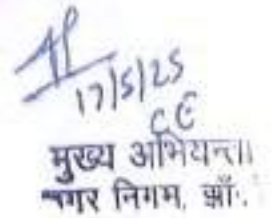 17/5/25
CE
मुख्य अभियन्ता
नगर निगम, झाँ.